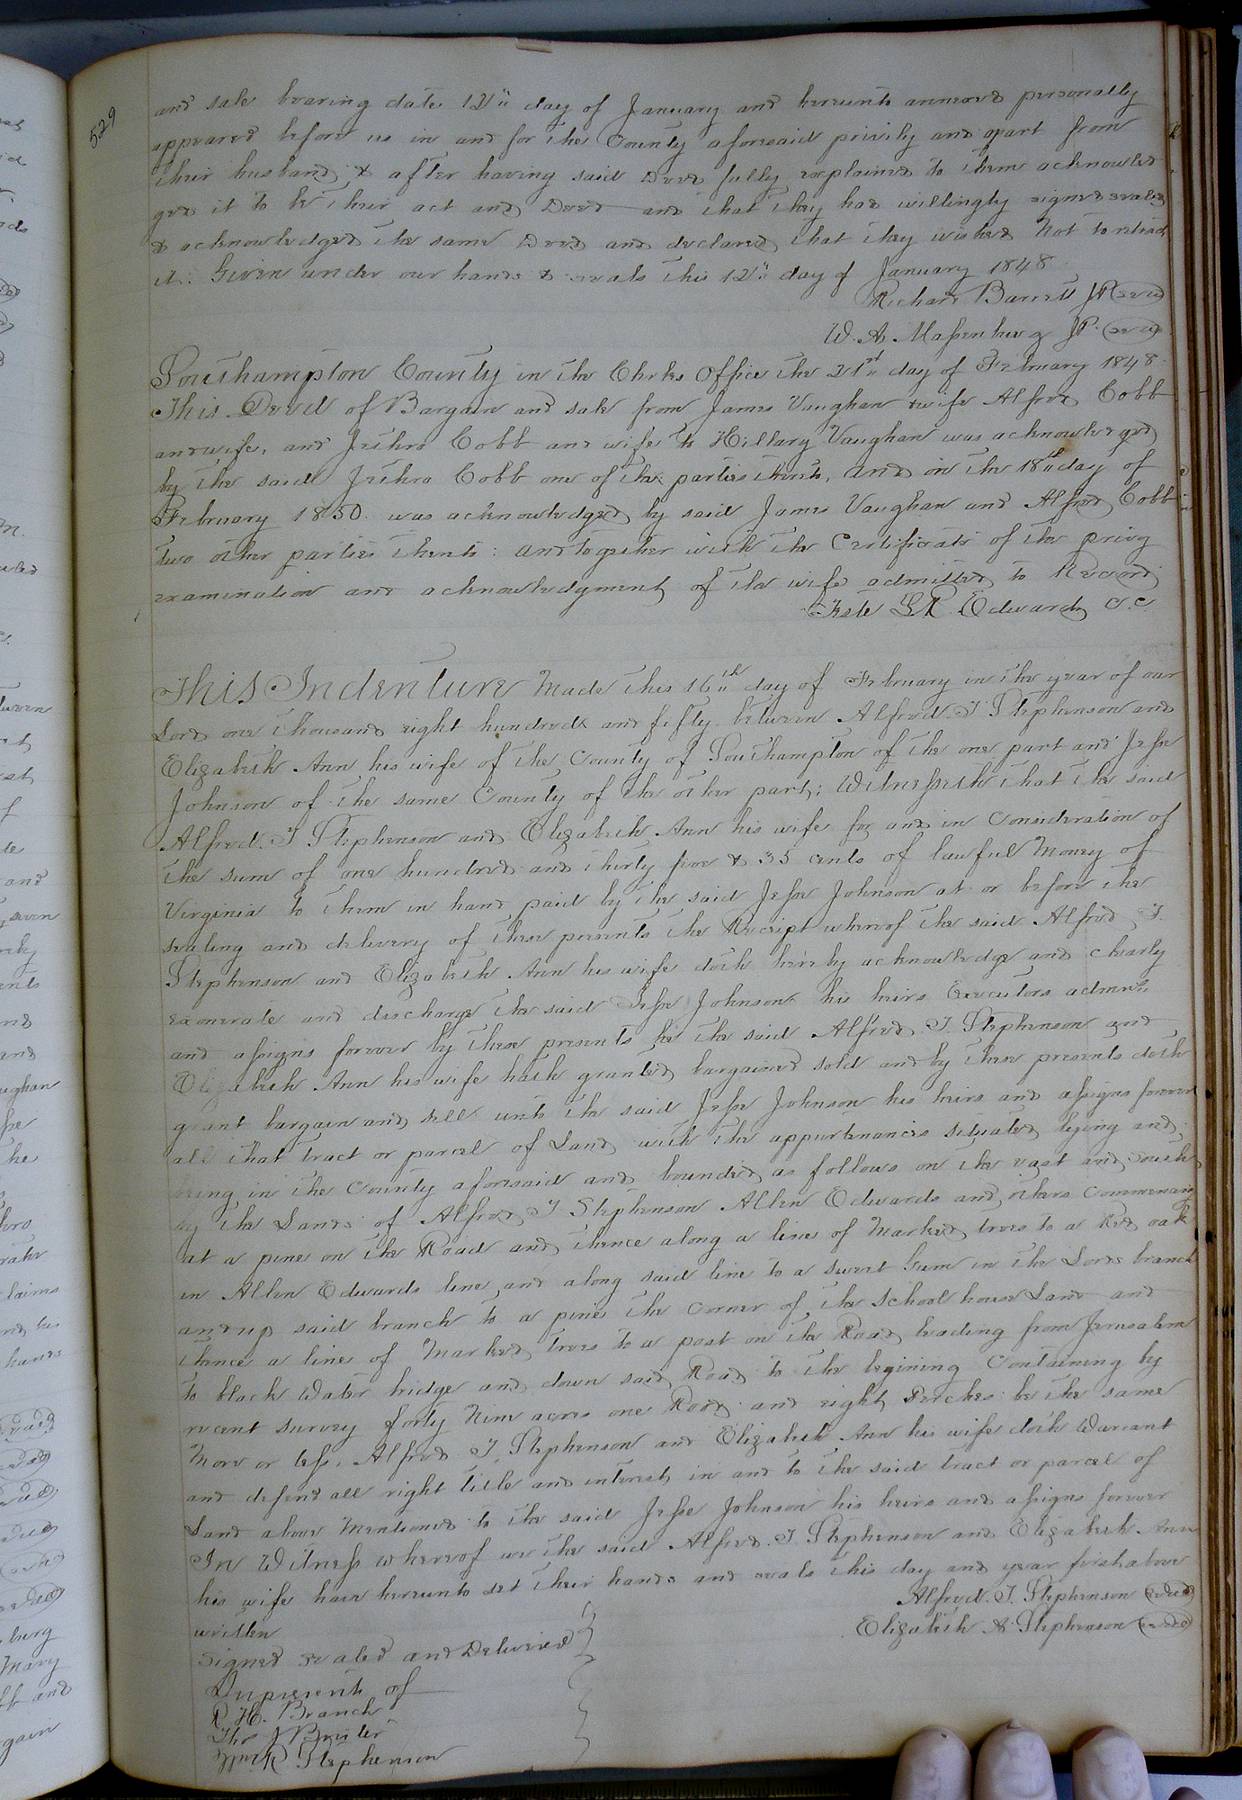 529
and sale bearing date 12" day of January and hereunto annexed personally
appeared before us in and for the County aforesaid privily and apart from
their husband, & after having said Deed fully explained to them acknowled
ged it to be their act and Deed and that they had willingly signed sealed
& acknowledged the same Deed and declared that they wished Not to retract
it. Given under our hands & seals this 12" day of January 1848
Richard Barrett JP (seal)
W. A. Massenburg JP. (seal)
Southampton County in the Clerks Office the 21st day of February 1848
This Deed of Bargain and sale from James Vaughan & wife Alfred Cobb
and wife, and Jethro Cobb and wife to Hillary Vaughan was acknowledged
by the said Jethro Cobb one of the parties thereto, and on the 18th day of
February 1850. was acknowledged by said James Vaughan and Alfred Cobb
two other parties thereto: and together with the Certificate of the privy
examination and acknowledgment of the wife admitted to Record
Teste L R Edwards C.C.
This Indenture Made this 16th day of February in the year of our
Lord one thousand eight hundred and fifty between Alfred T Stephenson and
Elizabeth Ann his wife of the County of Southampton of the one part and Jesse
Johnson of the same County of the other part; Witnesseth that the said
Alfred. T Stephenson and Elizabeth Ann his wife for and in Consideration of
the sum of one hundred and thirty five & 35 cents of lawful Money of
Virginia to them in hand paid by the said Jesse Johnson at or before the
sealing and delivery of these presents the Receipt whereof the said Alfred T.
Stephenson and Elizabeth Ann his wife doth hereby acknowledge and clearly
exonerate and discharge the said Jesse Johnson his heirs Executors admrs
and assigns forever by these presents he the said Alfred T. Stephenson and
Elizabeth Ann his wife hath granted bargained sold and by these presents doth
grant bargain and sell unto the said Jesse Johnson his heirs and assigns forever
all that tract or parcel of Land with the appurtenances situated lying and
being in the County aforesaid and bounded as follows on the east and south
by the Lands of Alfred T Stephenson Allen Edwards and others Commencing
at a pine on the Road and thence along a line of Marked trees to a Red oak
in Allen Edwards line and along said line to a sweet Gum in the Lords branch
and up said branch to a pine the corner of the School house Land and
thence a line of Marked trees to a post on the Road leading from Jerusalem
to black Water bridge and down said Road to the begining Containing by
recent survey forty Nine acres one Rood and eight perches be the same
More or less. Alfred T. Stephenson and Elizabeth Ann his wife doth Warrant
and defend all right title and interest in and to the said tract or parcel of
Land above Mentioned to the said Jesse Johnson his heirs and assigns forever
In Witness whereof we the said Alfred. T Stephenson and Elizabeth Ann
his wife have hereunto set their hands and seals this day and year first above
written
Alfred. T. Stephenson (seal)
Elizabeth A Stephenson (seal)
Signed sealed and Delivered
In presents of
R. H. Branch
Tho J
Stephenson